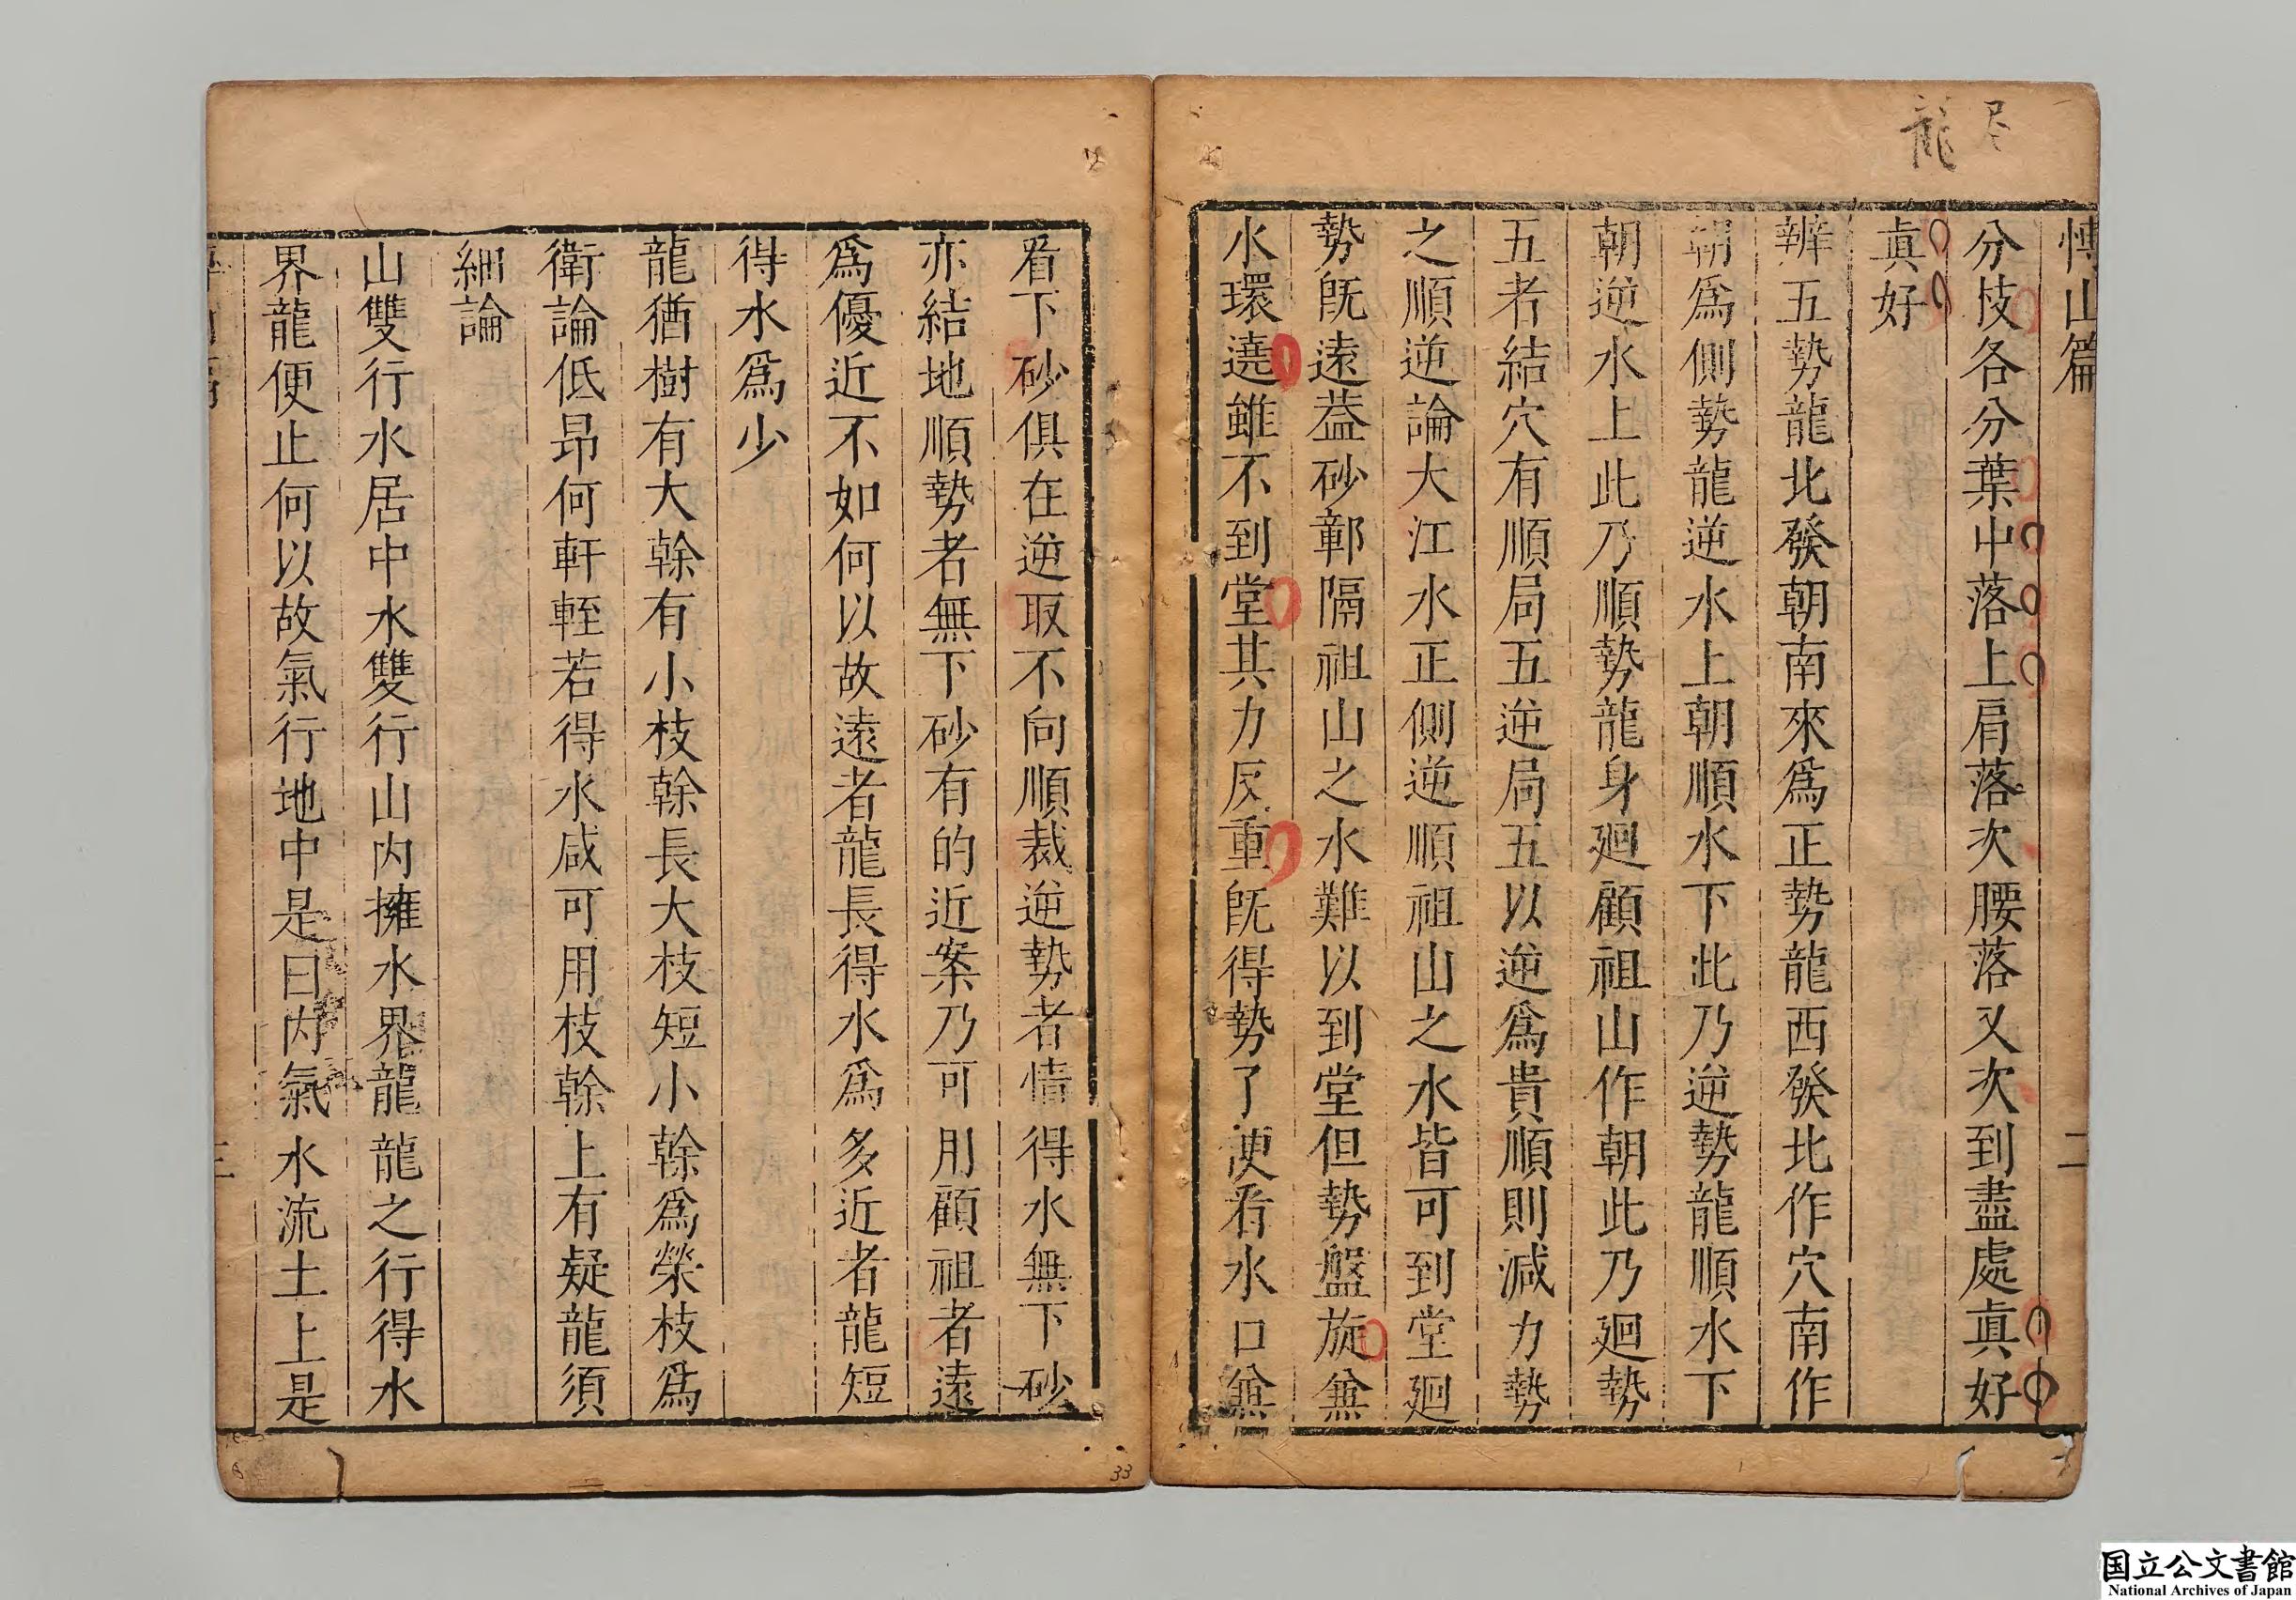 尽
龍
博山篇 二
分枝各分葉中落上肩落次腰落又次到盡處眞好
眞好
辨五勢龍北發朝南來爲正勢龍西發北作穴南作
朝爲側勢龍逆水上朝順水下此乃逆勢龍順水下
朝逆水上此乃順勢龍身廻顧祖山作朝此乃廻勢
五者結穴有順局五逆局五以逆爲貴順則減力勢
之順逆論大江水正側逆順祖山之水皆可到堂廻
勢旣遠葢砂鄣隔祖山之水難以到堂但勢盤旋兼
水環遶雖不到堂其力反重旣得勢了便看水口兼
看下砂俱在逆取不向順裁逆勢者情得水無下砂
亦結地順勢者無下砂有的近案乃可用顧祖者遠
爲優近不如何以故遠者龍長得水爲多近者龍短
得水爲少
龍猶樹有大榦有小枝榦長大枝短小榦爲榮枝爲
衛論低昂何軒輊若得水咸可用枝榦上有疑龍須
細論
山雙行水居中水雙行山内擁水界龍龍之行得水
界龍便止何以故氣行地中是曰内氣水流土上是
三
33
国立公文書館
National Archives of Japan